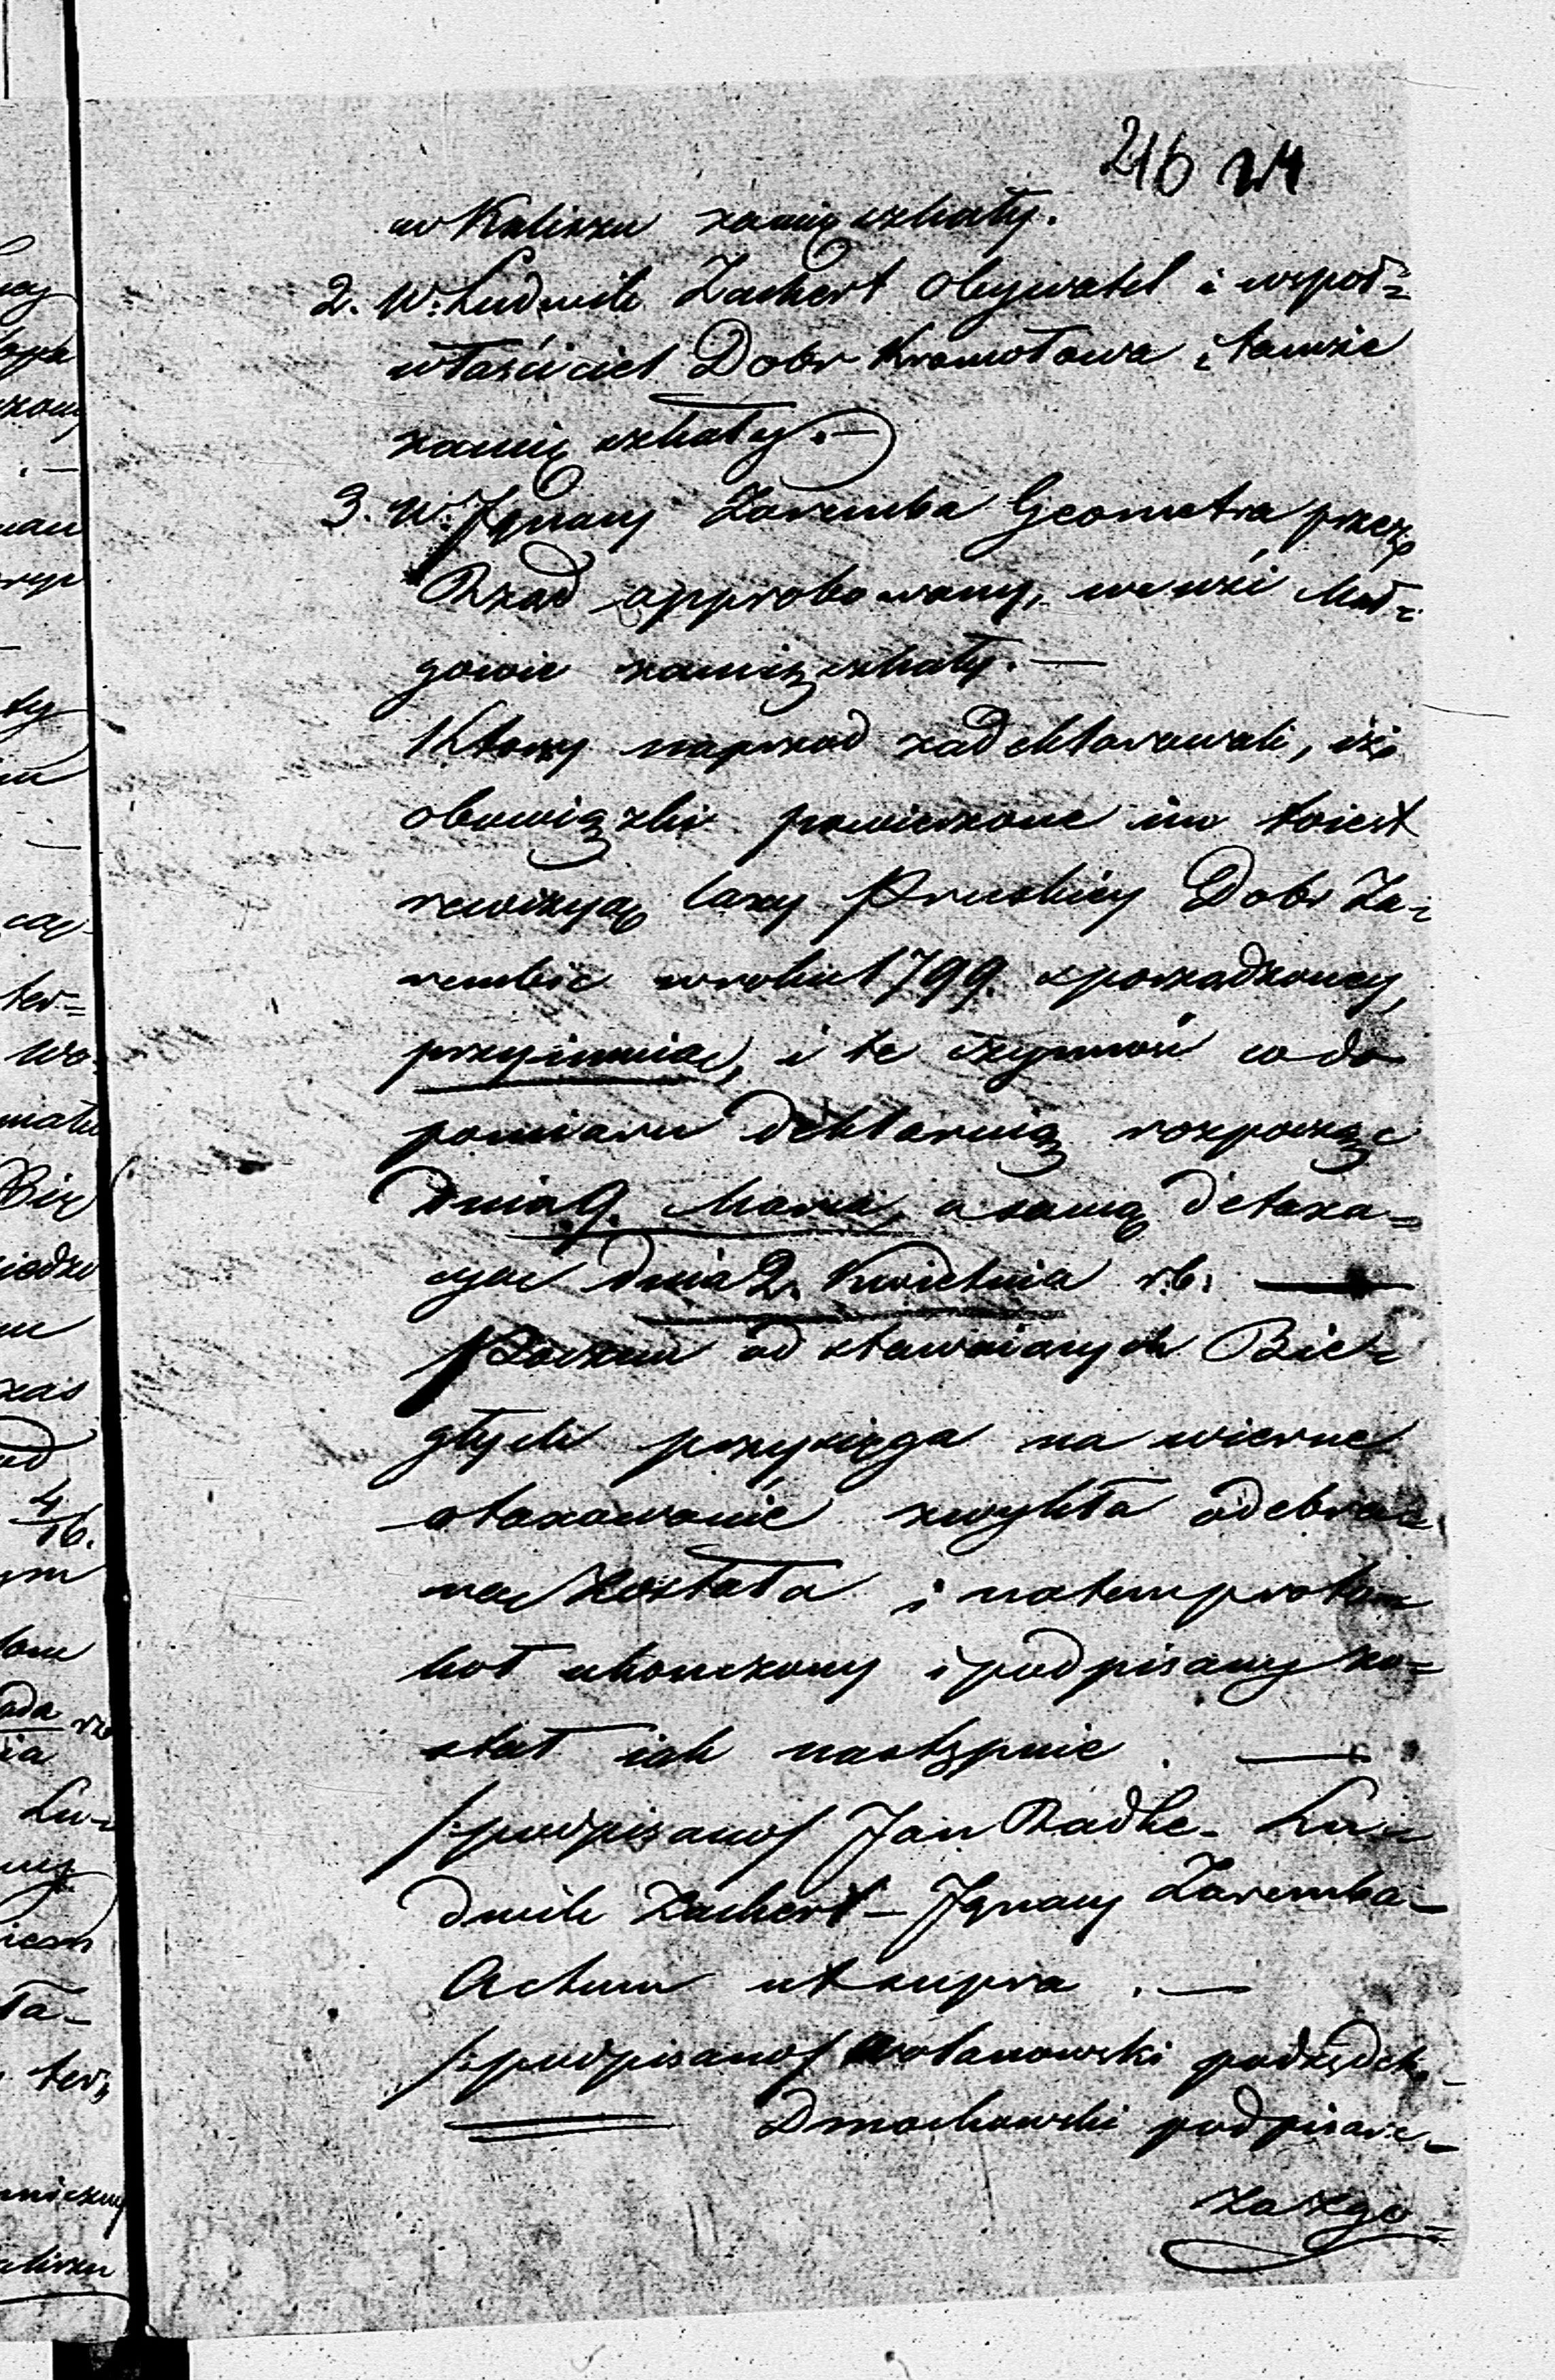 216 24
w Kaliszu zamięszkały.
2. W. Ludwik Zachert Obywatel i wspoł=
właściciel Dobr Kromołowa i tamże
zamięszkały.—
3. W. Ignacy Zaremba Geometra przez
Rząd approbowany, we wsi
gowie zamięszkały.—
Ktorzy naprzod zadeklarowali, iż
obowiązki powierzone im toiest
rewizyą taxy Pruskiey Dobr Za=
rembie w roku 1799. sporządzoney,
przyimuią, i te czynność co do
pomiaru deklaruią rozpocząc
dnia 9. Marca, a samą detaxa=
cyą dnia 2. Kwietnia r.b. —
Poczem od stawaiących Bie=
głych przysięga na wierne
otaxowanie zwykła odebra=
na została i natem proto=
koł ukonczony i podpisany zo=
stał iak następuie. —
/:podpisano/ Jan Radke - Lu=
dwik Zachert - Ignacy Zaremba -
Actum ut supra. —
/:podpisano/ Wolanowski podsędek -
Dmochowski podpisarz -
Za zgo=